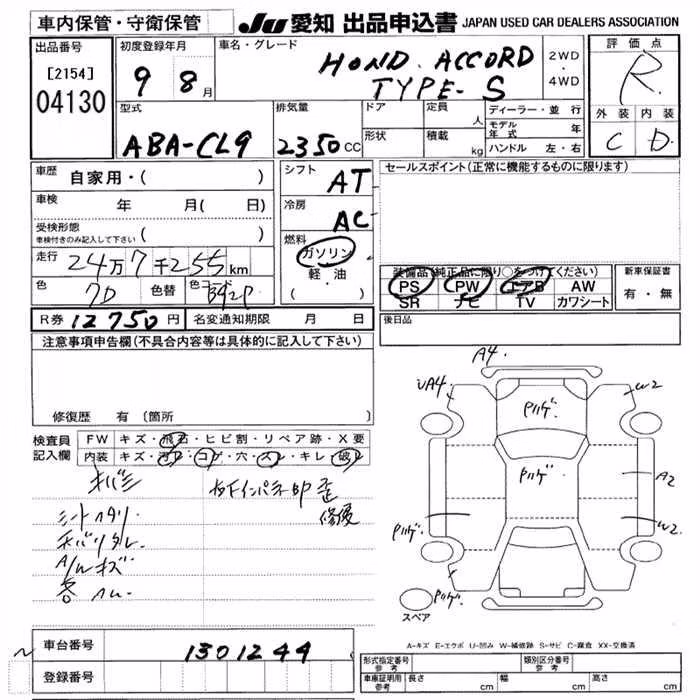 車内保管・守衛保管 JU 愛知 出品申込書 JAPAN USED CAR DEALERS ASSOCIATION
出品番号 [2154] 04130
初度登録年月 9 8月
車名・グレード HOND. ACCORD TYPE-S
2WD・4WD
評価点 R
外装 内装
C D
型式 ABA-CL9
排気量 2350cc
ドア 定員 人
形状 積載 kg
ディーラー・並行
モデル年式 年
ハンドル 左・右
車歴 自家用・( )
車検 年 月( 日)
受検形態
車検付きのみ記入して下さい ( )
走行 24万7千255km
色 色替
シフト AT
冷房 AC
燃料 ガソリン・軽油・( )
セールスポイント(正常に機能するものに限ります)
装備品(純正品に限り○をつけてください)
PS PW エアB AW
SR ナビ TV カワシート
新車保証書
有・無
R券 12750円 名変通知期限 月 日
後日品
注意事項申告欄(不具合内容等は具体的に記入して下さい)
修復歴 有 (箇所
検査員記入欄
FW キズ・飛石・ヒビ割・リペア跡・X要
内装 キズ・・コゲ・穴・スレ・キレ・破レ
シートヘタリ
A/Wキズ
修復
A4
UA4 W2
A2
W2
スペア
A-キズ E-エクボ U-凹み W-補修跡 S-サビ C-腐食 XX-交換済
車台番号 1301244
登録番号
形式指定番号 参考 類別区分番号 参考
車庫証明用 参考 長さ cm 幅 cm 高さ cm